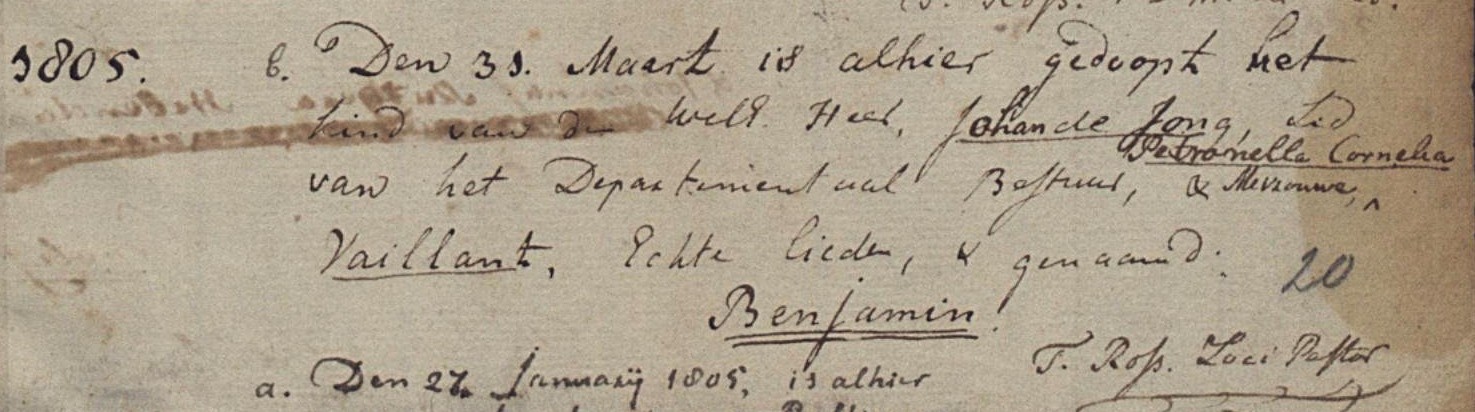 1805. b. Den 31. Maart is alhier gedoopt het
kind van de Welk. Heer, Johan de Jong, Lid
Petronella Cornelia
van het Departementaal Bestuur, & Mevrouwe, ^
Vaillant, Echte lieden, & genaamd:
20
Benjamin.
T. Roß. Loci Pastor
a. Den 27. Januarij 1805, is alhier